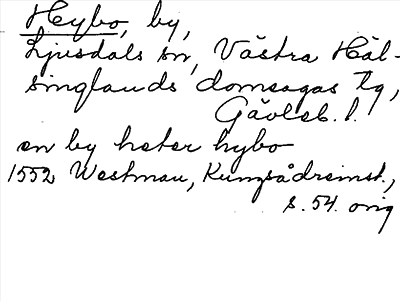 Hybo, by,
Ljusdals sn, Västra Häl-
singlands domsagas tg,
Gävleb. l.
en by heter hybo
1552 Westman, Kungsådreinst.,
s. 54. orig